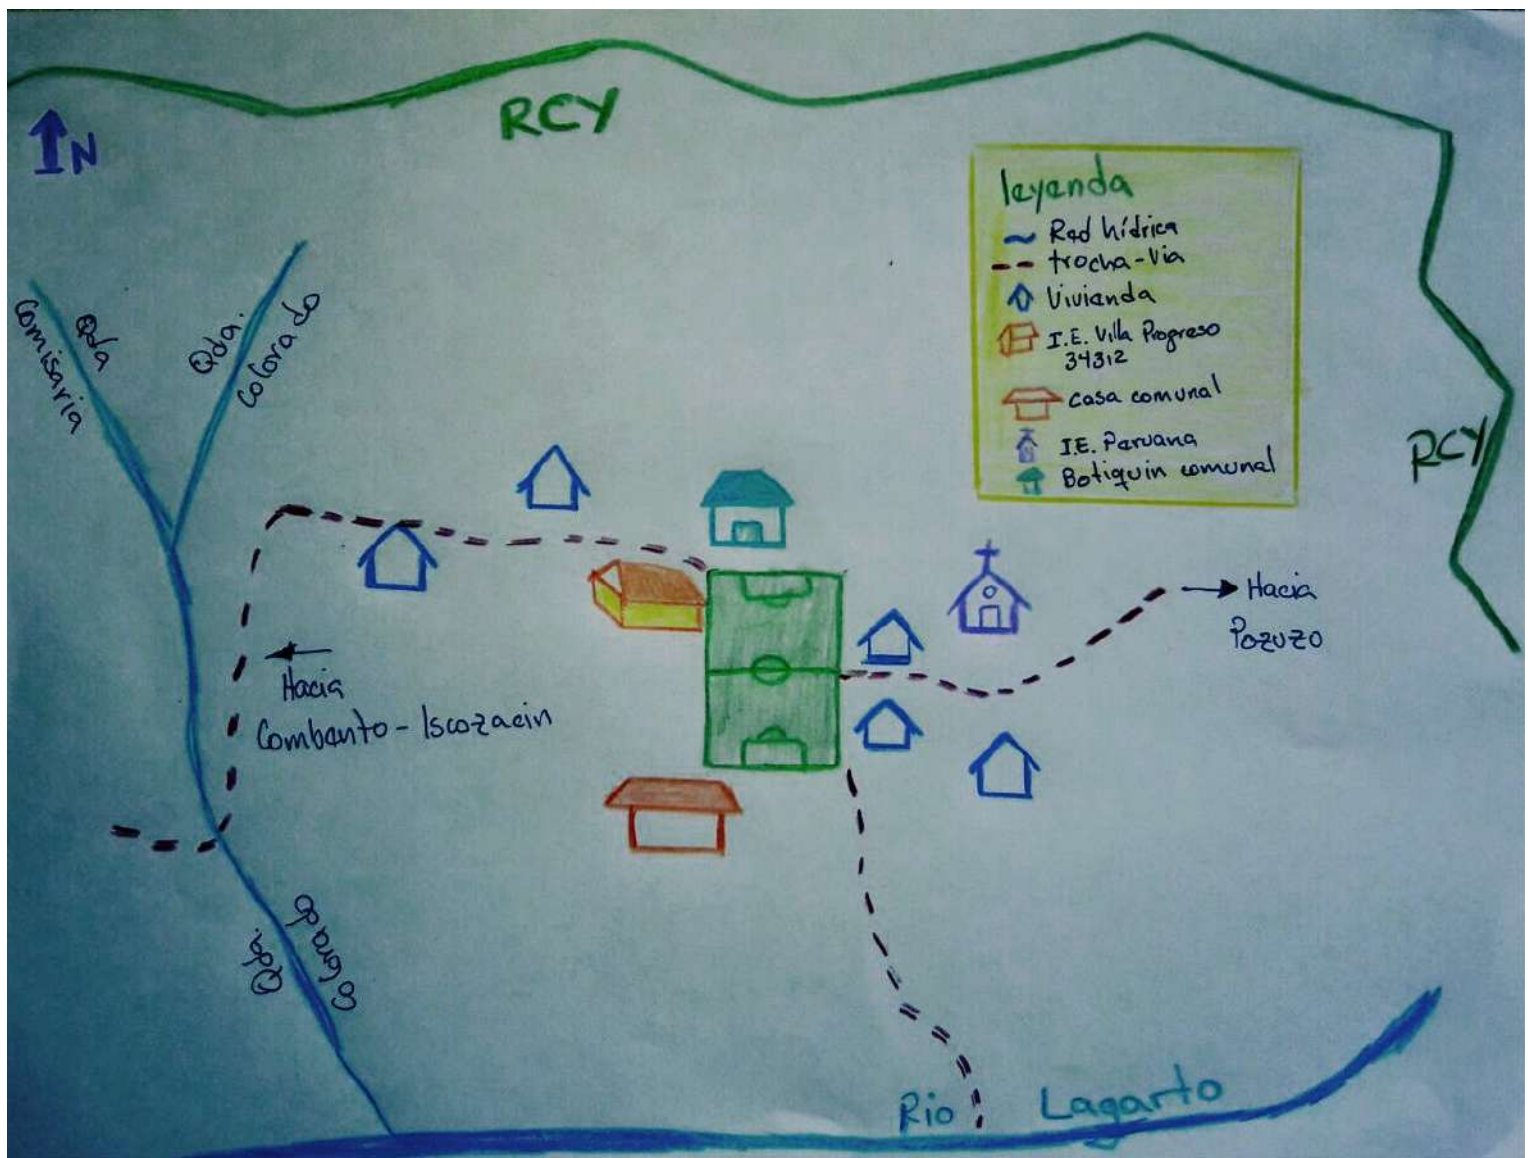 RCY
N
leyenda
Red hídrica
trocha-Via
Vivienda
I.E. Villa Progreso
34312
casa comunal
I.E. Peruana
Botiquin comunal
Qda
Comisaria
Qda.
Colorado
RCY
Hacia
Pozuzo
Hacia
Combanto - Iscozacin
Qda.
Colorado
Rio Lagarto